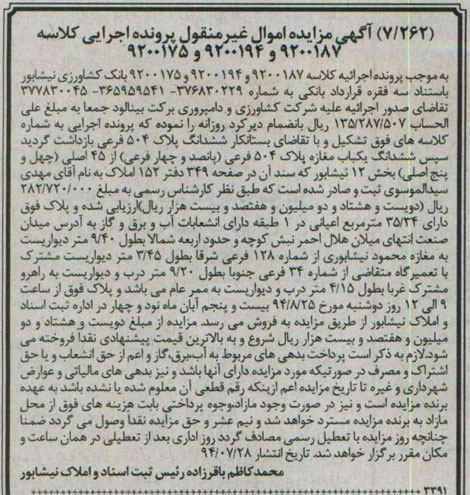 (۷/۲۶۲) آگهی مزایده اموال غیر منقول پرونده اجرایی کلاسه
۹۲۰۰۱۸۷ و ۹۲۰۰۱۹۴ و ۹۲۰۰۱۷۵
به موجب پرونده اجرائیه کلاسه ۹۲۰۰۱۸۷ و ۹۲۰۰۱۹۴ و ۹۲۰۰۱۷۵ بانک کشاورزی نیشابور
باستناد سه فقره قرارداد بانکی به شماره ۳۷۶۸۳۰۲۲۹- ۳۶۵۹۵۹۵۴۱- ۳۷۷۸۳۰۰۴۵
تقاضای صدور اجرائیه علیه شرکت کشاورزی و دامپروری برکت بینالود جمعا به مبلغ علی
الحساب ۱۳۵/۲۸۷/۵۰۷ ریال بانضمام دیرکرد روزانه را نموده که پرونده اجرایی به شماره
کلاسه های فوق تشکیل و با تقاضای بستانکار ششدانگ پلاک ۵۰۴ فرعی بازداشت گردید
سپس ششدانگ یکباب مغازه پلاک ۵۰۴ فرعی (پانصد و چهار فرعی) از ۴۵ اصلی (چهل و
پنج اصلی) بخش ۱۲ نیشابور که سند آن در صفحه ۳۴۹ دفتر ۱۵۲ املاک به نام آقای مهدی
سیدالموسوی ثبت و صادر شده است که طبق نظر کارشناس رسمی به مبلغ ۲۸۲/۷۲۰/۰۰۰
ریال (دویست و هشتاد و دو میلیون و هفتصد و بیست هزار ریال)ارزیابی شده و پلاک فوق
دارای ۳۵/۳۴ مترمربع اعیانی در ۱ طبقه دارای انشعابات آب و برق و گاز به آدرس میدان
صنعت انتهای میلان هلال احمر نبش کوچه و حدود اربعه شمالا بطول ۹/۴۰ متر دیواریست
به مغازه محمود نیشابوری از شماره ۱۲۸ فرعی شرقا بطول ۳/۴۵ متر دیواریست مشترک
با تعمیرگاه متقاضی از شماره ۳۴ فرعی جنوبا بطول ۹/۲۰ متر درب و دیواریست به راهرو
مشترک غربا بطول ۴/۱۵ متر درب و دیواریست به ممر عام می باشد و پلاک فوق از ساعت
۹ الی ۱۲ روز دوشنبه مورخ ۹۴/۸/۲۵ بیست و پنجم آبان ماه نود و چهار در اداره ثبت اسناد
و املاک نیشابور از طریق مزایده به فروش می رسد. مزایده از مبلغ دویست و هشتاد و دو
میلیون و هفتصد و بیست هزار ریال شروع و به بالاترین قیمت پیشنهادی نقدا فروخته می
شود.لازم به ذکر است پرداخت بدهی های مربوط به آب،برق،گاز و اعم از حق انشعاب و یا حق
اشتراک و مصرف در صورتیکه مورد مزایده دارای آنها باشد و نیز بدهی های مالیاتی و عوارض
شهرداری و غیره تا تاریخ مزایده اعم ازینکه رقم قطعی آن معلوم شده یا نشده باشد به عهده
برنده مزایده است و نیز در صورت وجود مازاد،وجوه پرداختی بابت هزینه های فوق از محل
مازاد به برنده مزایده مسترد خواهد شد و نیم عشر و حق مزایده نقدا وصول می گردد ضمنا
چنانچه روز مزایده با تعطیل رسمی مصادف گردد روز اداری بعد از تعطیلی در همان ساعت و
مکان مقرر برگزار خواهد شد. تاریخ انتشار ۹۴/۰۷/۲۸
محمدکاظم باقرزاده رئیس ثبت اسناد و املاک نیشابور
۳۳۹۱